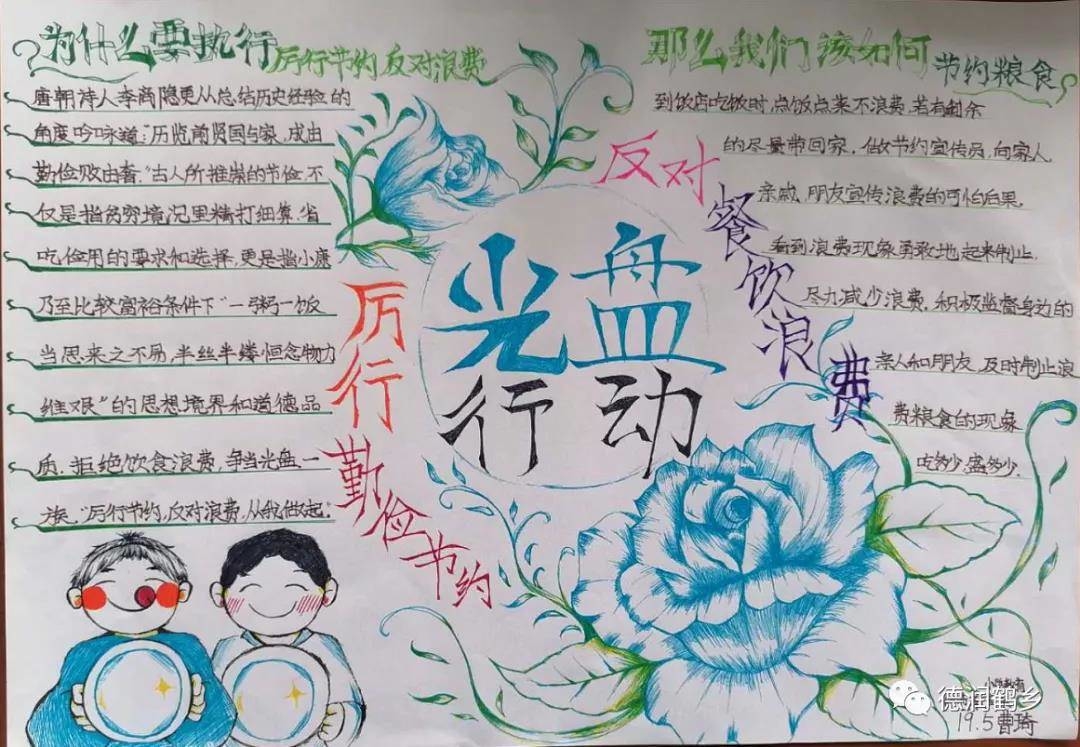 为什么要执行厉行节约反对浪费?
唐朝诗人李商隐更从总结历史经验的
角度吟咏道:“历览前贤国与家,成由
勤俭败由奢.”古人所推崇的节俭.不
仅是指贫穷境况里精打细算.省
吃俭用的要求和选择,更是指小康
乃至比较富裕条件下“一粥一饭
当思来之不易,半丝半缕恒念物力
维艰”的思想境界和道德品
质.拒绝饮食浪费,争当光盘一
族.“厉行节约,反对浪费,从我做起”
那么我们该如何节约粮食?
到饭店吃饭时,点饭点菜不浪费.若有剩余
的尽量带回家.做节约宣传员,向家人.
亲戚.朋友宣传浪费的可怕后果.
看到浪费现象勇敢地起来制止.
尽力减少浪费.积极监督身边的
亲人和朋友.及时制止浪
费粮食的现象
吃多少.盛多少.
光盘
行动
厉行
勤俭节约
反对
餐饮浪费
德润鹤乡
19.5曹琦